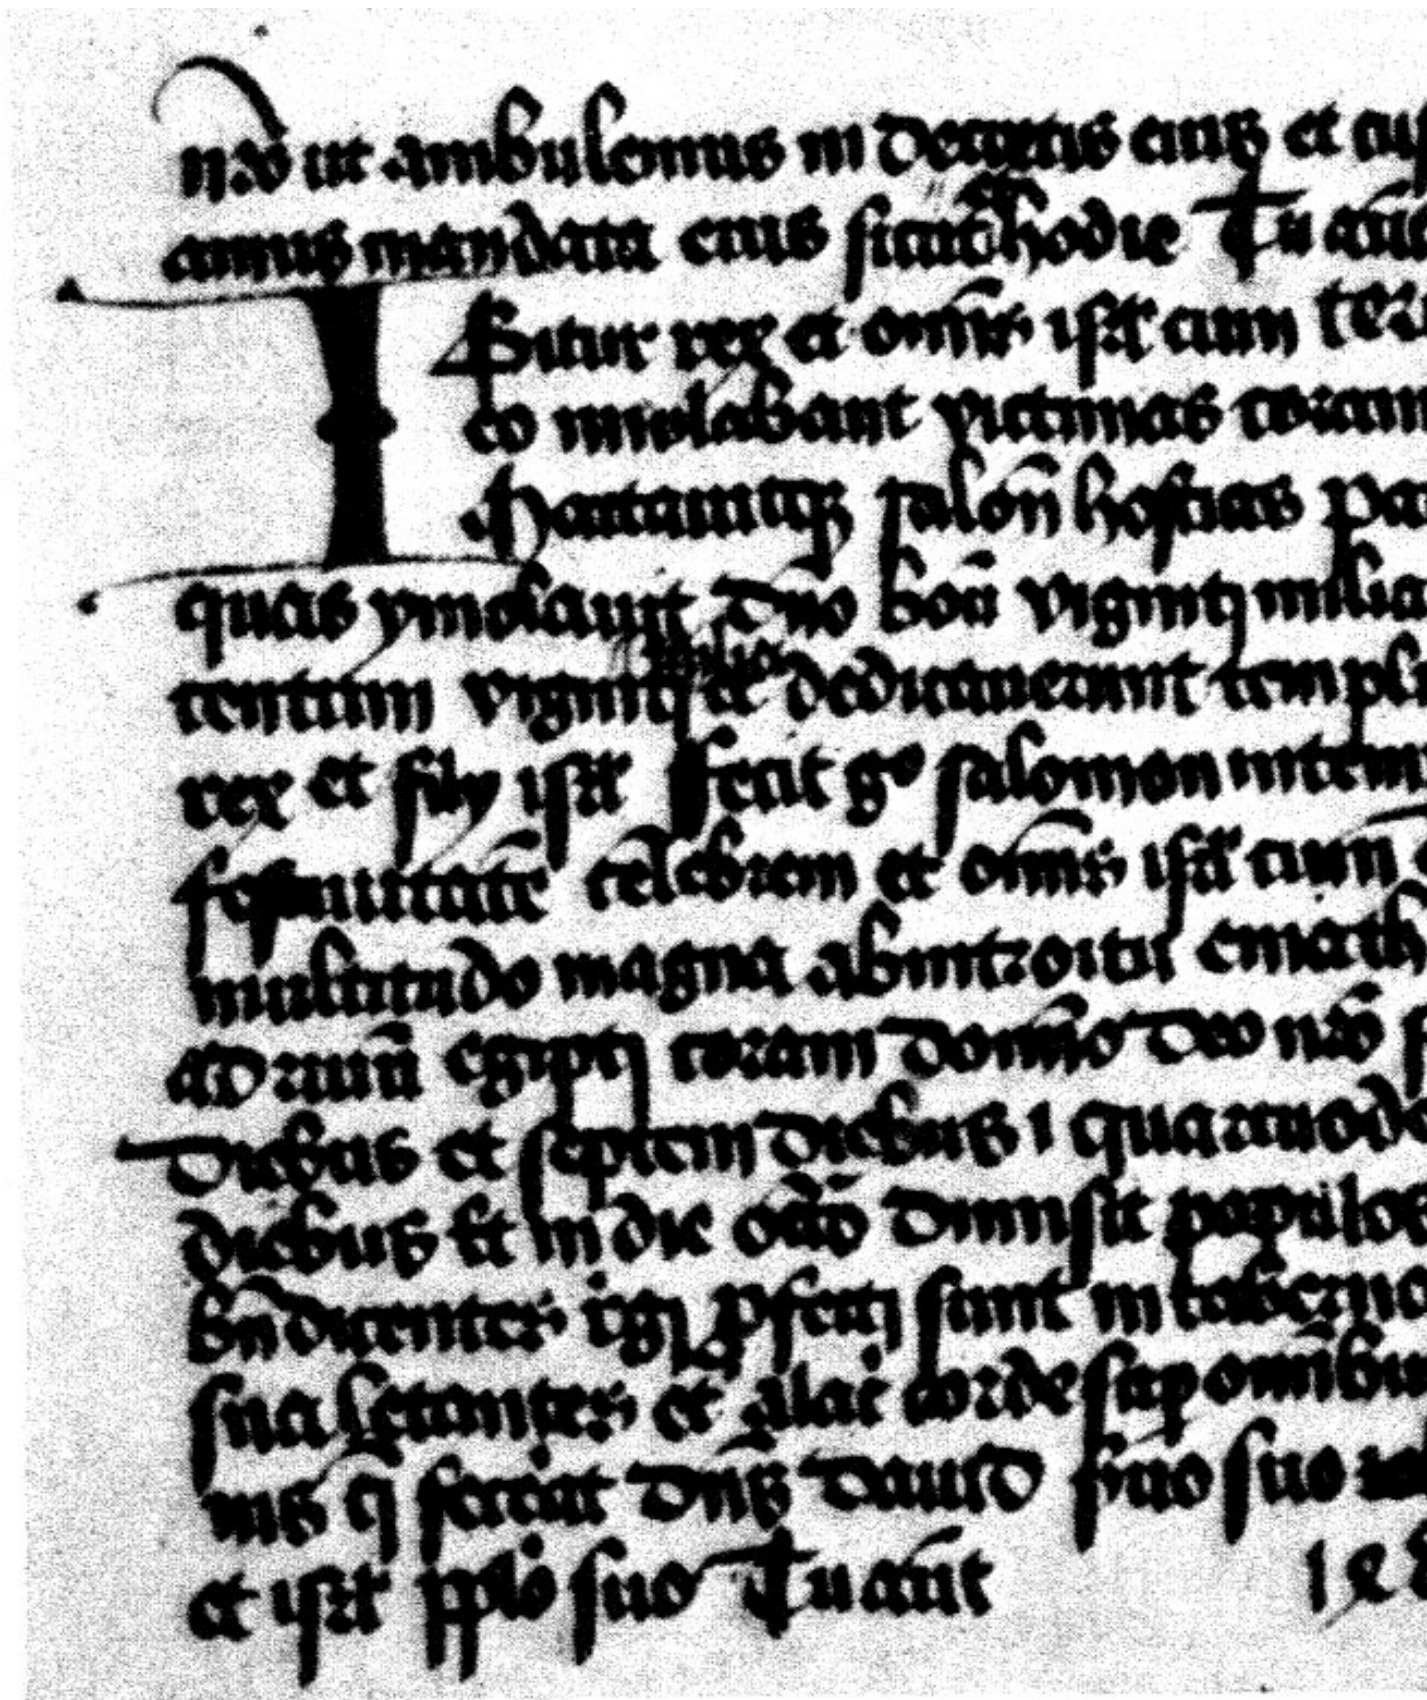 nr̄o ut ambulemus in decretis eius et cus
amus mandata eius sicut et hodie Tu aūt
Igitur rex et om̄es isrl cum
co ymolabant victimas coram
Mactauitq; salom̄ hostias pa
quas ymolauit dn̄o boū viginti milia
centum viginti milia et dedicauerunt templ
rex et filij isrl fecit gͦ salomon in tem
festiuitatē celebrem et om̄es isrl cum
multitudo magna ab introitu emath
ad riuū egipti coram domīo deo nr̄o
diebus et septem diebus i quatuorde
diebus Et in die octō dimisit populos
bn̄dicentes regi profecti sunt in taberna
sua letantes et alac̄ corde sup om̄ibu
nis q̄ fecerat dn̄s dauid s̄uo suo
et isrl pplo suo Tu aūt